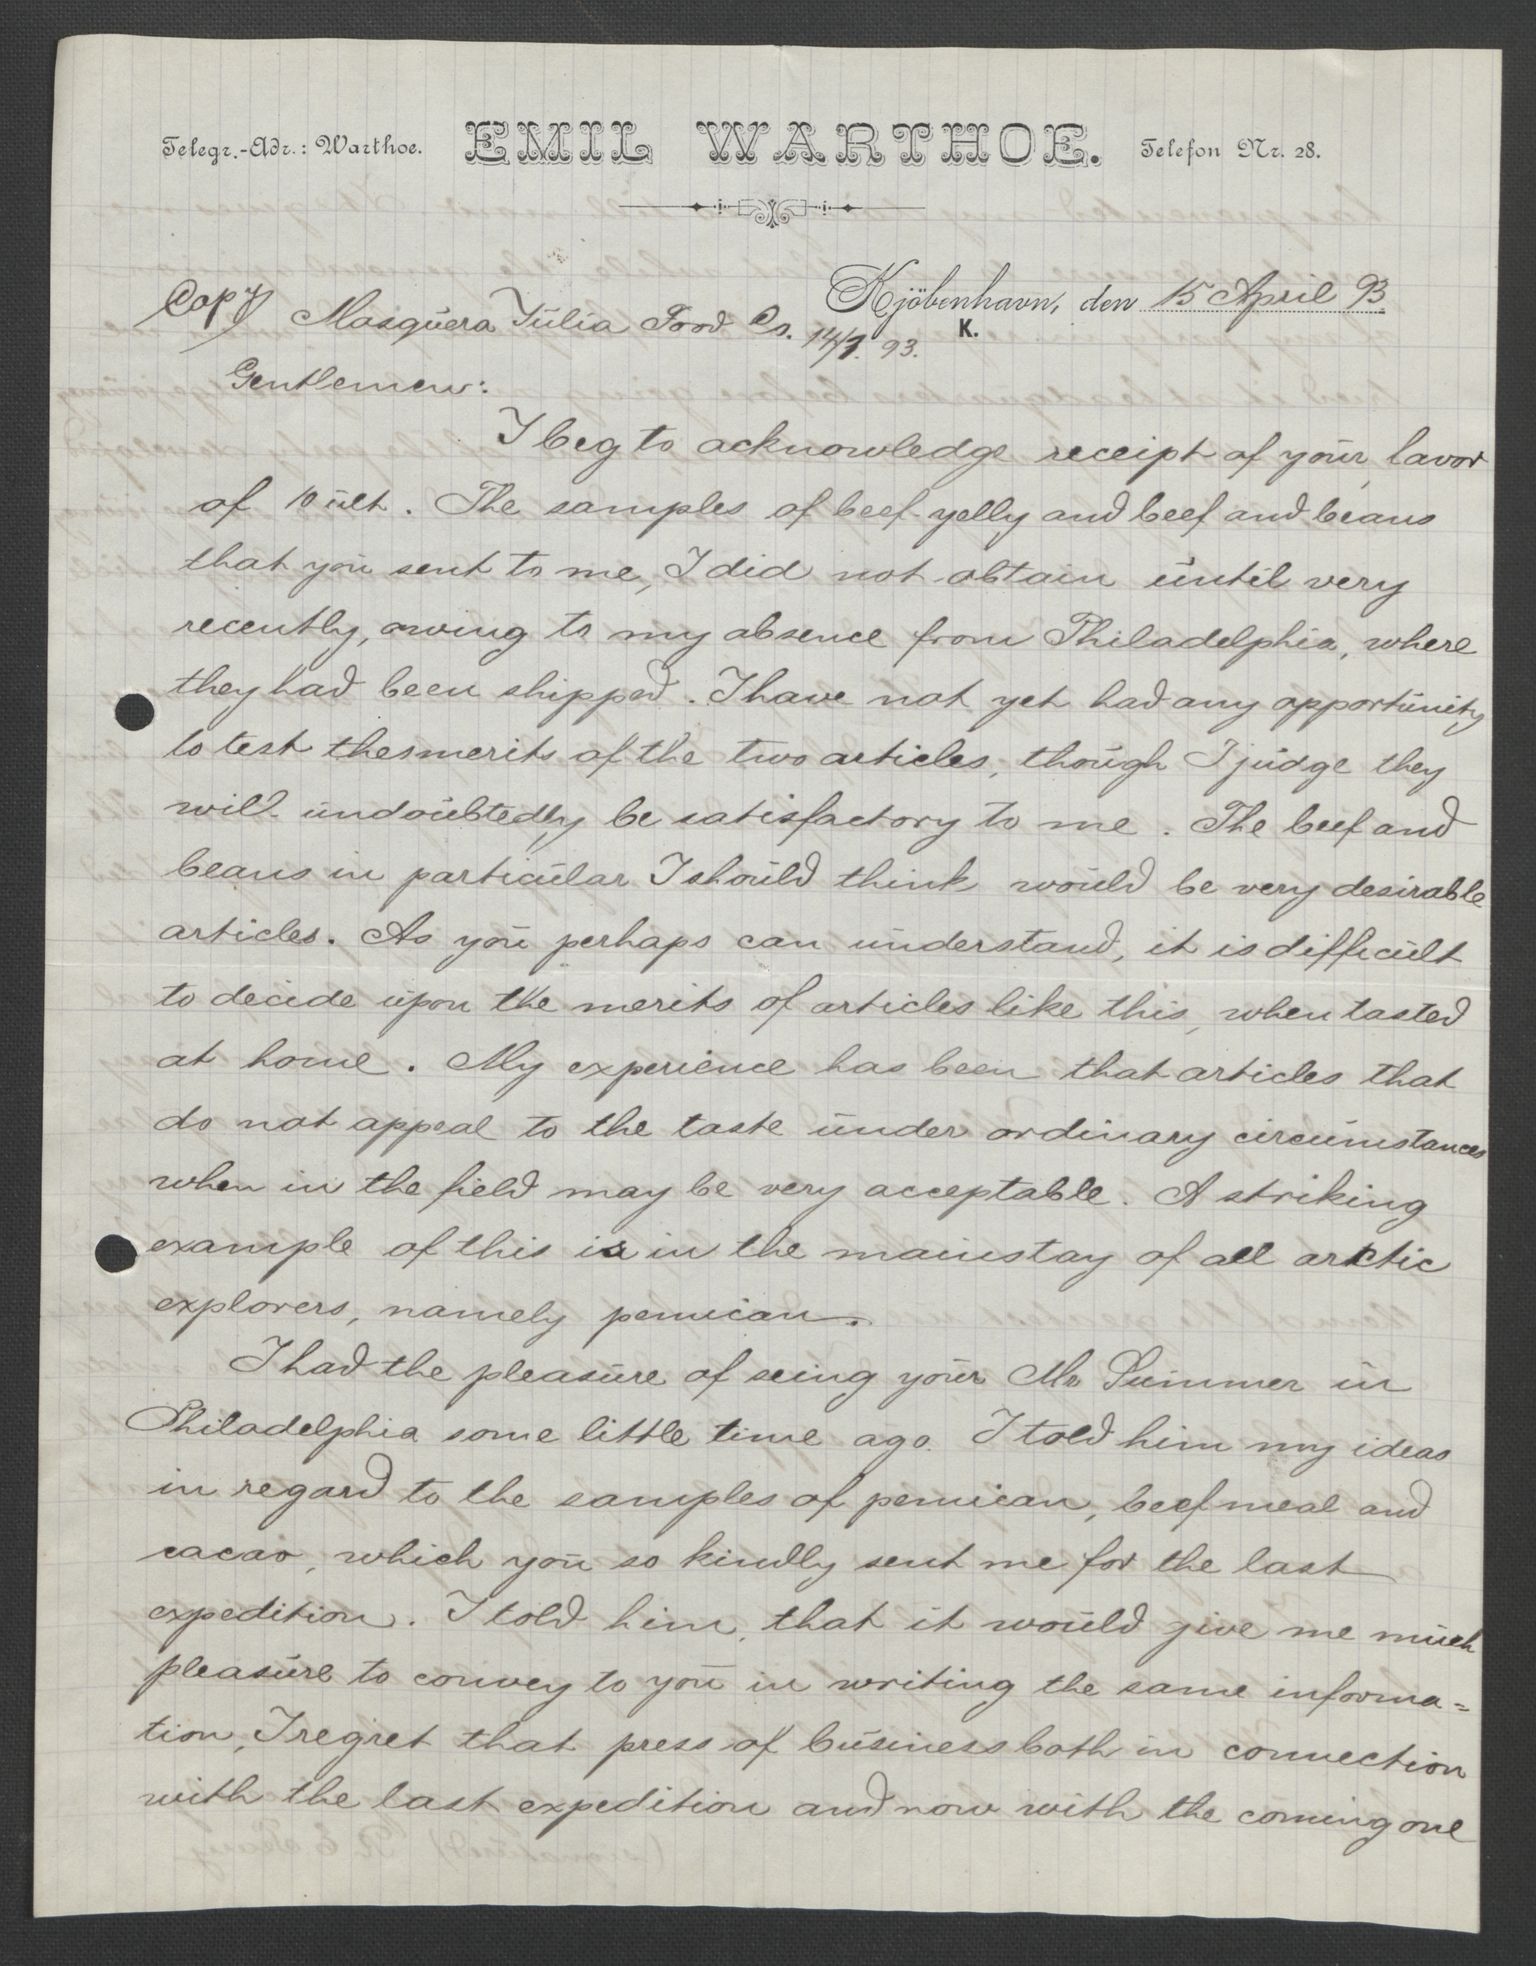 Telegr.-Adr.: Warthoe. EMIL WARTHOE. Telefon Nr. 28.
Kjöbenhavn, den 15 April 93
K.
Copy Mosquera Julia Food Co. 14/1. 93.
Gentlemen:
I beg to acknowledge receipt of your favor
of 10 ult. The samples of beef yelly and beef and beans
that you sent to me, I did not obtain until very
recently, owing to my absence from Philadelphia, where
they had been shipped. I have not yet had any opportunity
to test the merits of the two articles, though I judge they
will undoubtedly be satisfactory to me. The beef and
beans in particular I should think would be very desirable
articles. As you perhaps can understand, it is difficult
to decide upon the merits of articles like this, when tasted
at home. My experience has been that articles that
do not appeal to the taste under ordinary circumstances
when in the field may be very acceptable. A striking
example of this is in the mainstay of all arctic
explorers, namely pemican.
I had the pleasure of seing your Mr Summer in
Philadelphia some little time ago. I told him my ideas
in regard to the samples of pemican, beef meal and
cacao, which you so kindly sent me for the last
expedition. I told him, that it would give me much
pleasure to convey to you in writing the same informa=
tion, I regret that press of business both in connection
with the last expedition and now with the coming one